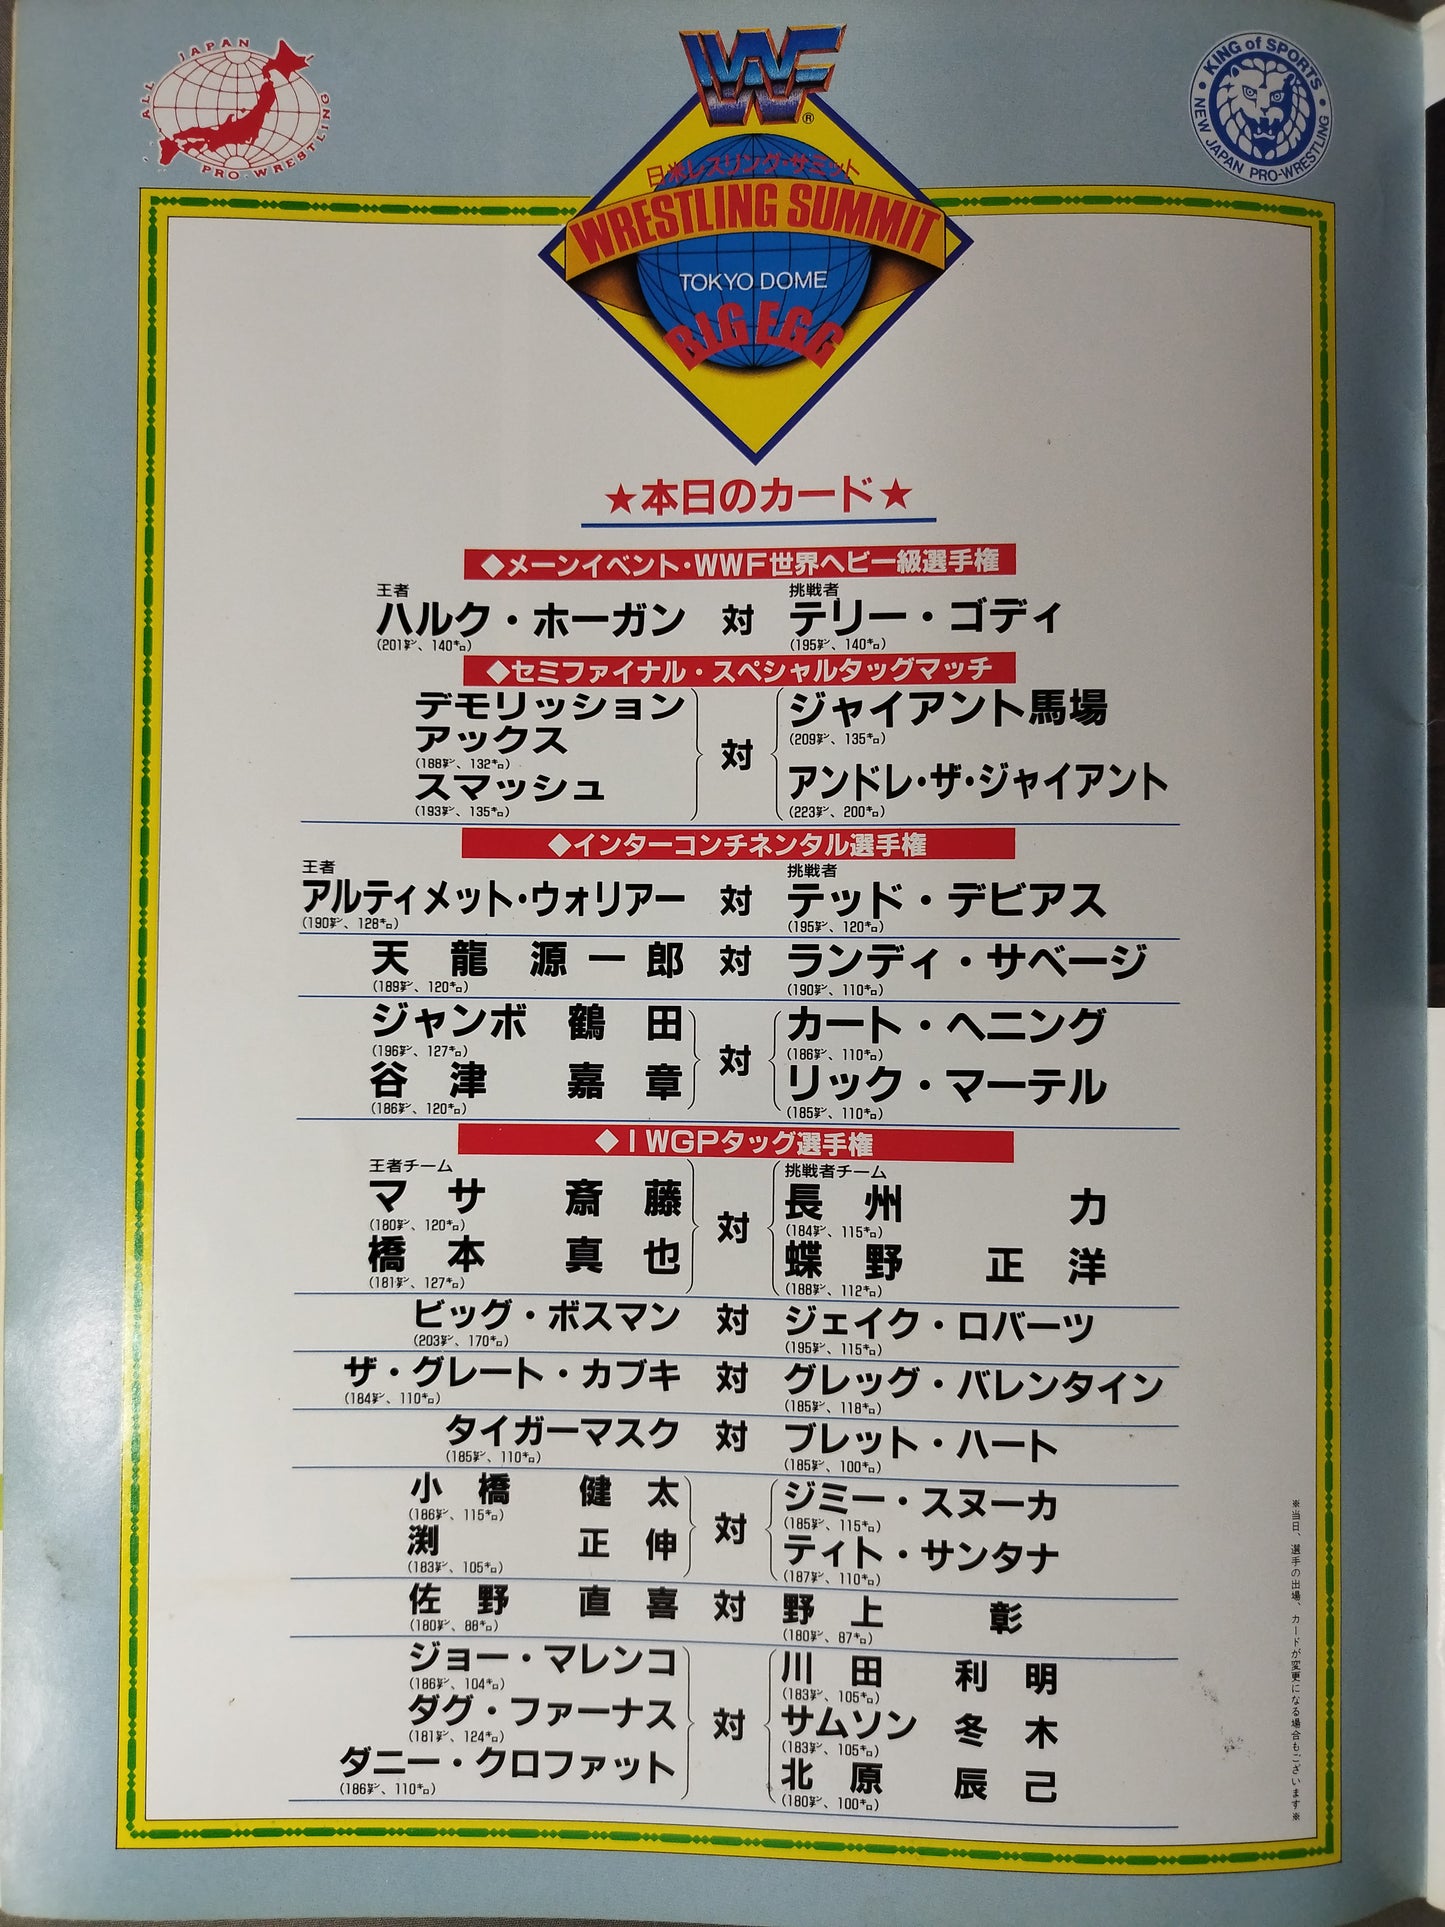 ALL JAPAN PRO-WRESTLING
WWF®
KING of SPORTS
NEW JAPAN PRO-WRESTLING
日米レスリング・サミット
WRESTLING SUMMIT
TOKYO DOME
BIG EGG
★本日のカード★
◆メーンイベント・WWF世界ヘビー級選手権
王者 挑戦者
ハルク・ホーガン 対 テリー・ゴディ
(201㌢、140㌔) (195㌢、140㌔)
◆セミファイナル・スペシャルタッグマッチ
デモリッション
アックス
(188㌢、132㌔)
スマッシュ
(193㌢、135㌔)
対
ジャイアント馬場
(209㌢、135㌔)
アンドレ・ザ・ジャイアント
(223㌢、200㌔)
◆インターコンチネンタル選手権
王者 挑戦者
アルティメット・ウォリアー 対 テッド・デビアス
(190㌢、128㌔) (195㌢、120㌔)
天龍源一郎 対 ランディ・サベージ
(189㌢、120㌔) (190㌢、110㌔)
ジャンボ鶴田
(196㌢、127㌔)
谷津嘉章
(186㌢、120㌔)
対
カート・ヘニング
(186㌢、110㌔)
リック・マーテル
(185㌢、110㌔)
◆IWGPタッグ選手権
王者チーム
マサ斎藤
(180㌢、120㌔)
橋本真也
(181㌢、127㌔)
対
挑戦者チーム
長州力
(184㌢、115㌔)
蝶野正洋
(188㌢、112㌔)
ビッグ・ボスマン 対 ジェイク・ロバーツ
(203㌢、170㌔) (195㌢、115㌔)
ザ・グレート・カブキ 対 グレッグ・バレンタイン
(184㌢、110㌔) (185㌢、118㌔)
タイガーマスク 対 ブレット・ハート
(185㌢、110㌔) (185㌢、100㌔)
小橋健太
(186㌢、115㌔)
渕正伸
(183㌢、105㌔)
対
ジミー・スヌーカ
(185㌢、115㌔)
ティト・サンタナ
(187㌢、110㌔)
佐野直喜 対 野上彰
(180㌢、88㌔) (180㌢、87㌔)
ジョー・マレンコ
(186㌢、104㌔)
ダグ・ファーナス
(181㌢、124㌔)
ダニー・クロファット
(186㌢、110㌔)
対
川田利明
(183㌢、105㌔)
サムソン冬木
(183㌢、105㌔)
北原辰己
(180㌢、100㌔)
※当日、選手の出場、カードが変更になる場合もございます※